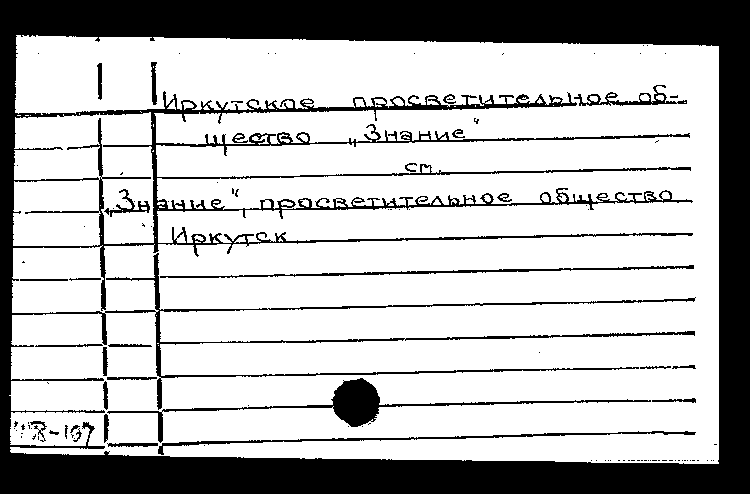 Иркутское просветительное об-
щество „Знание“
см.
„Знание“, просветительное общество
Иркутск